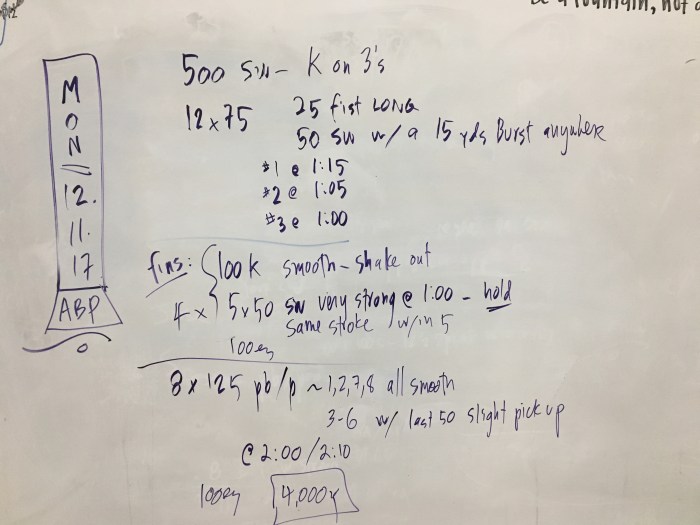 a fountain, not
MON
12.
11.
17
ABP
500 sw - K on 3's
12x75 25 fist LONG
50 sw w/ a 15 yds Burst anywhere
#1 @ 1:15
#2 @ 1:05
#3 @ 1:00
fins: 100 k smooth - shake out
4x 5x50 sw very strong @ 1:00 - hold
same stroke w/in 5
100 ez
8x125 pb/p ~ 1,2,7,8 all smooth
3-6 w/ last 50 slight pick up
@ 2:00/2:10
100 ez 4,000y